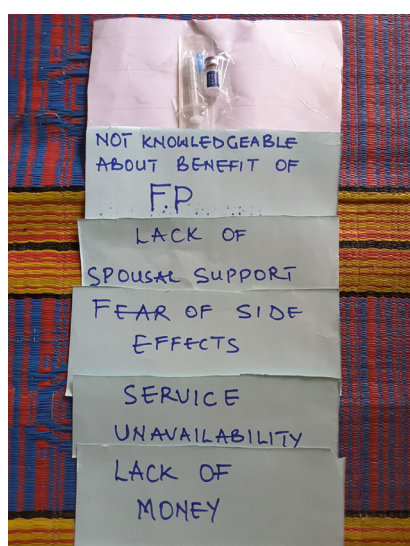 NOT KNOWLEDGEABLE
ABOUT BENEFIT OF
FP
LACK OF
SPOUSAL SUPPORT
FEAR OF SIDE
EFFECTS
SERVICE
UNAVAILABILITY
LACK OF
MONEY